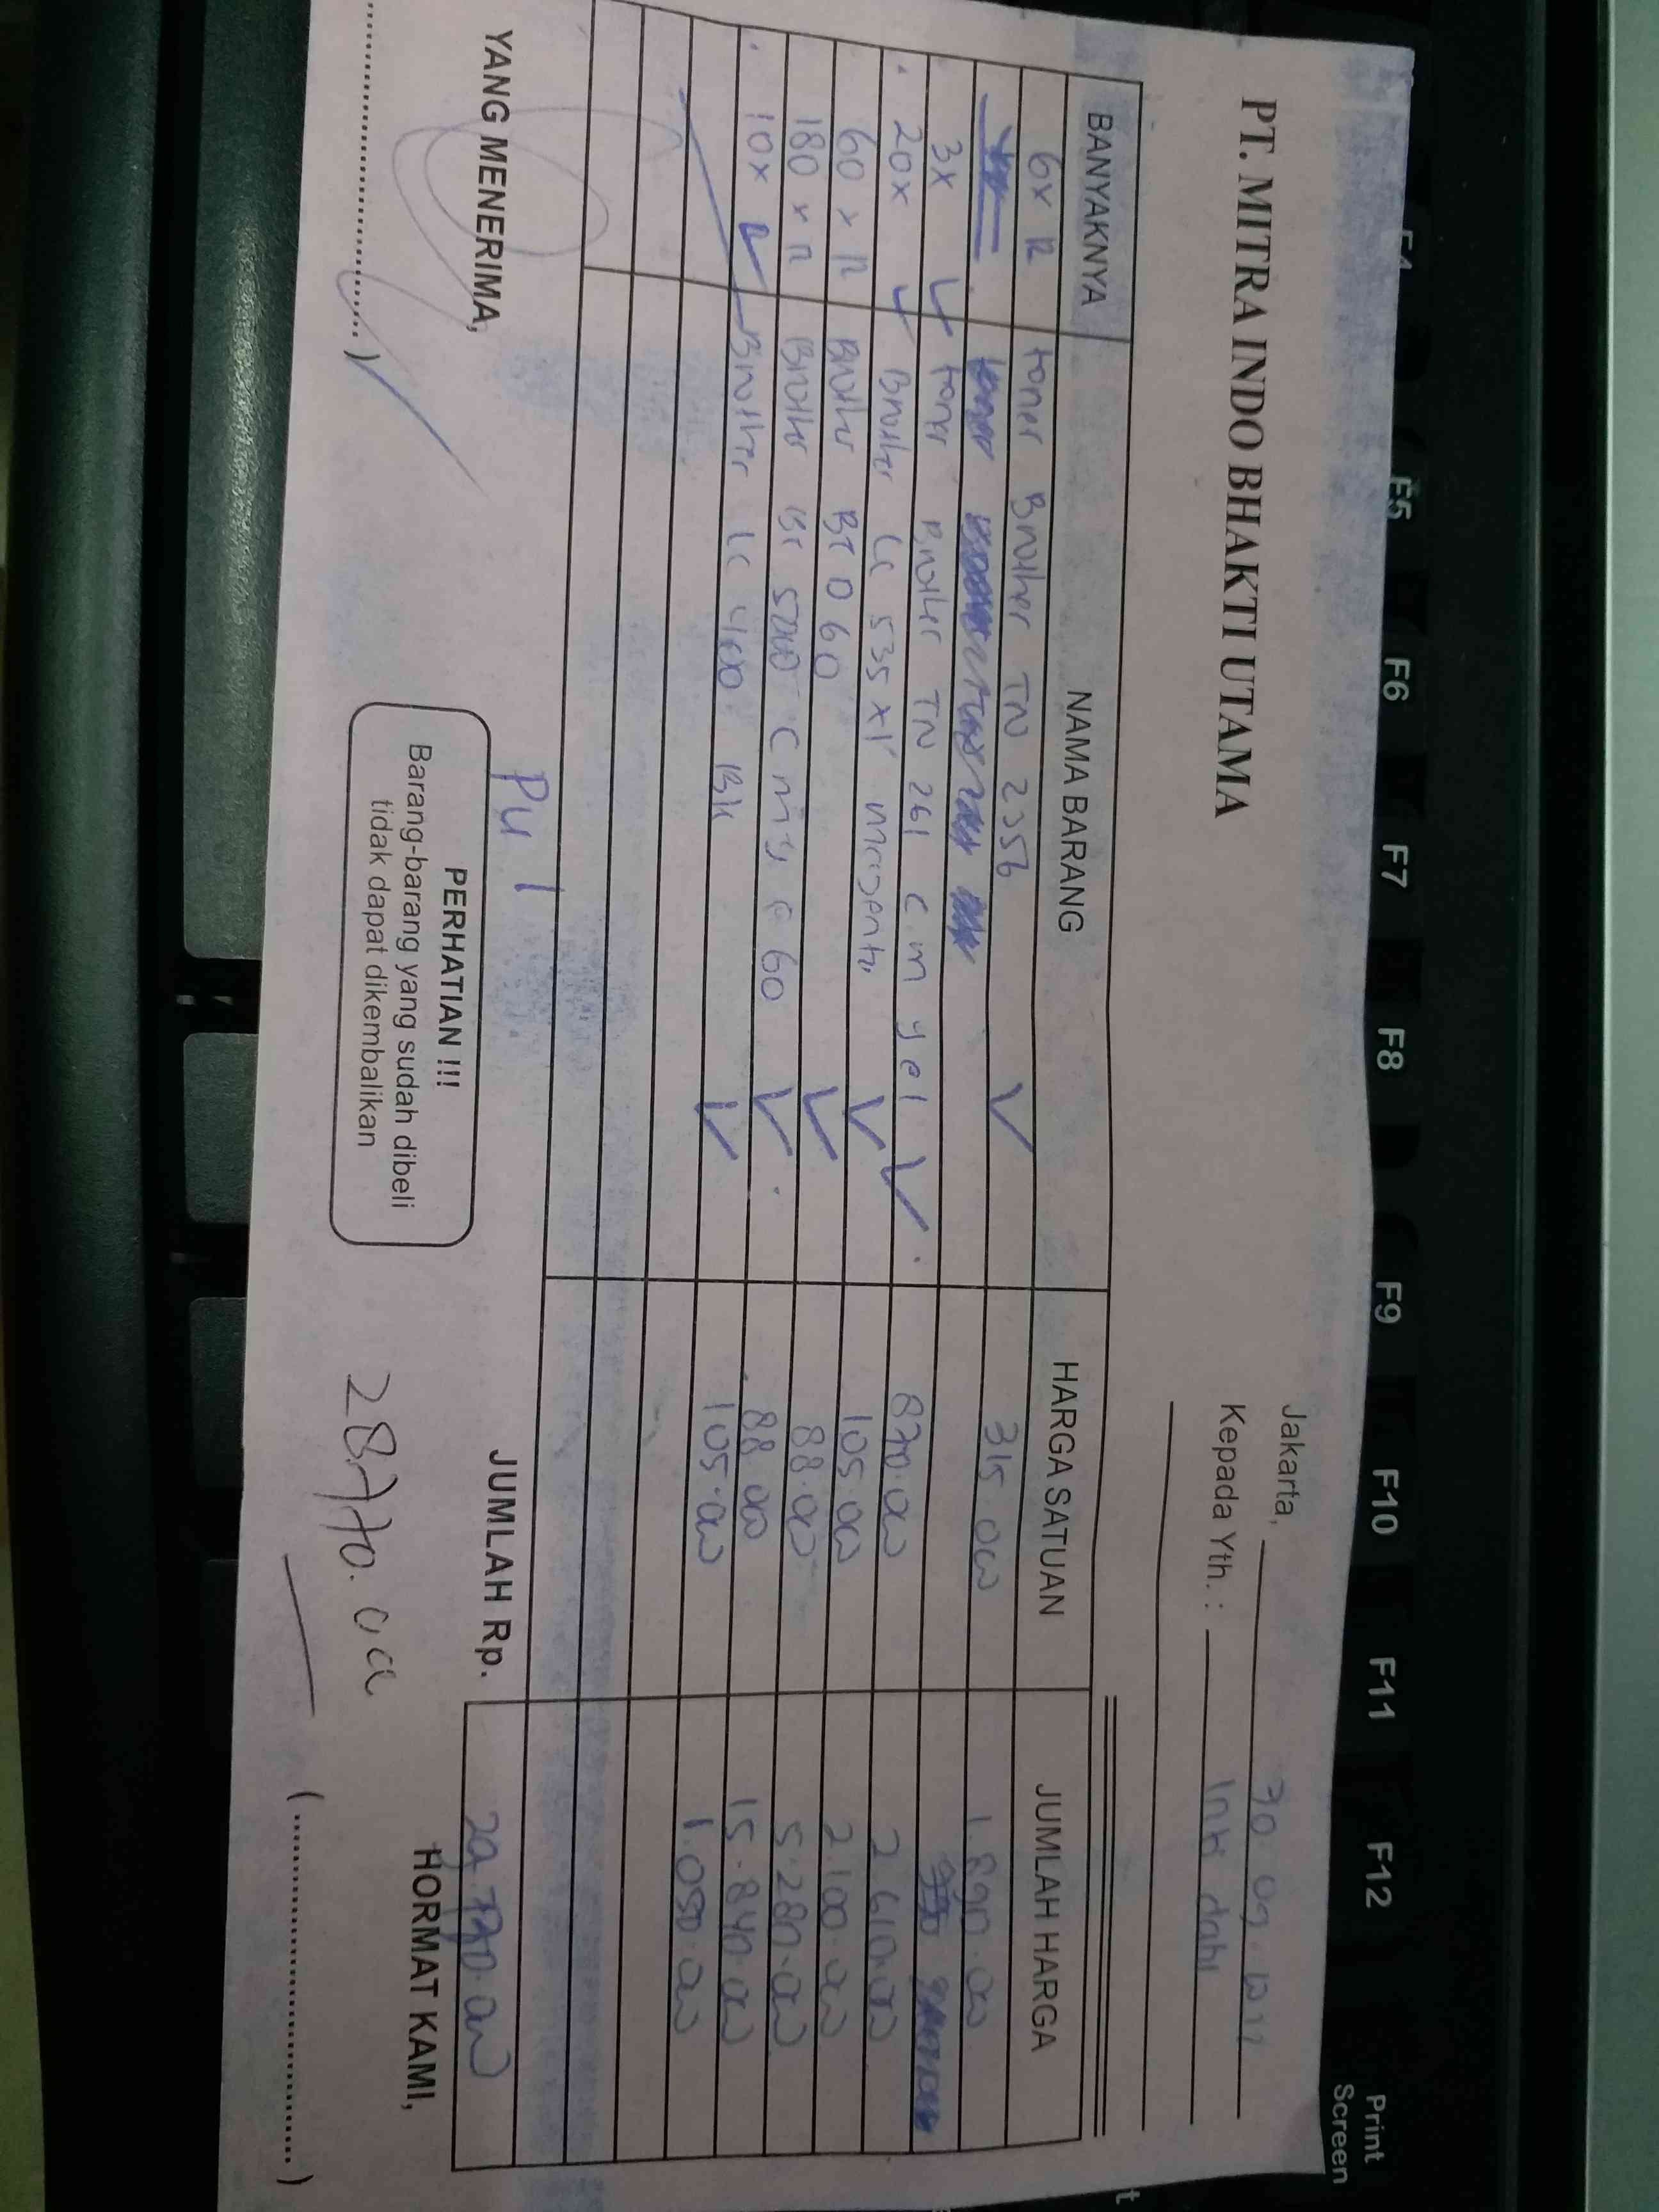 PT. MITRA INDO BHAKTI UTAMA
Jakarta, 30 09
Kepada Yth. : Ink
BANYAKNYA NAMA BARANG HARGA SATUAN JUMLAH HARGA
6x R toner Brother TN 2356 315.000 1.890.000
3x toner Brother TN 261 C m yel 870.000 2.610.000
20x Brother LC 535 XL magenta 105.000 2.100.000
60 x Brother BT D 60 88.000 5.280.000
180 x Brother BT 5000 C m y @ 60 88.000 15.840.000
10x Brother LC 400 BK 105.000 1.050.000
JUMLAH Rp.
YANG MENERIMA,
HORMAT KAMI,
PERHATIAN !!!
Barang-barang yang sudah dibeli
tidak dapat dikembalikan
28.770.000
(....................)
F4 F5 F6 F7 F8 F9 F10 F11 F12 Print
Screen